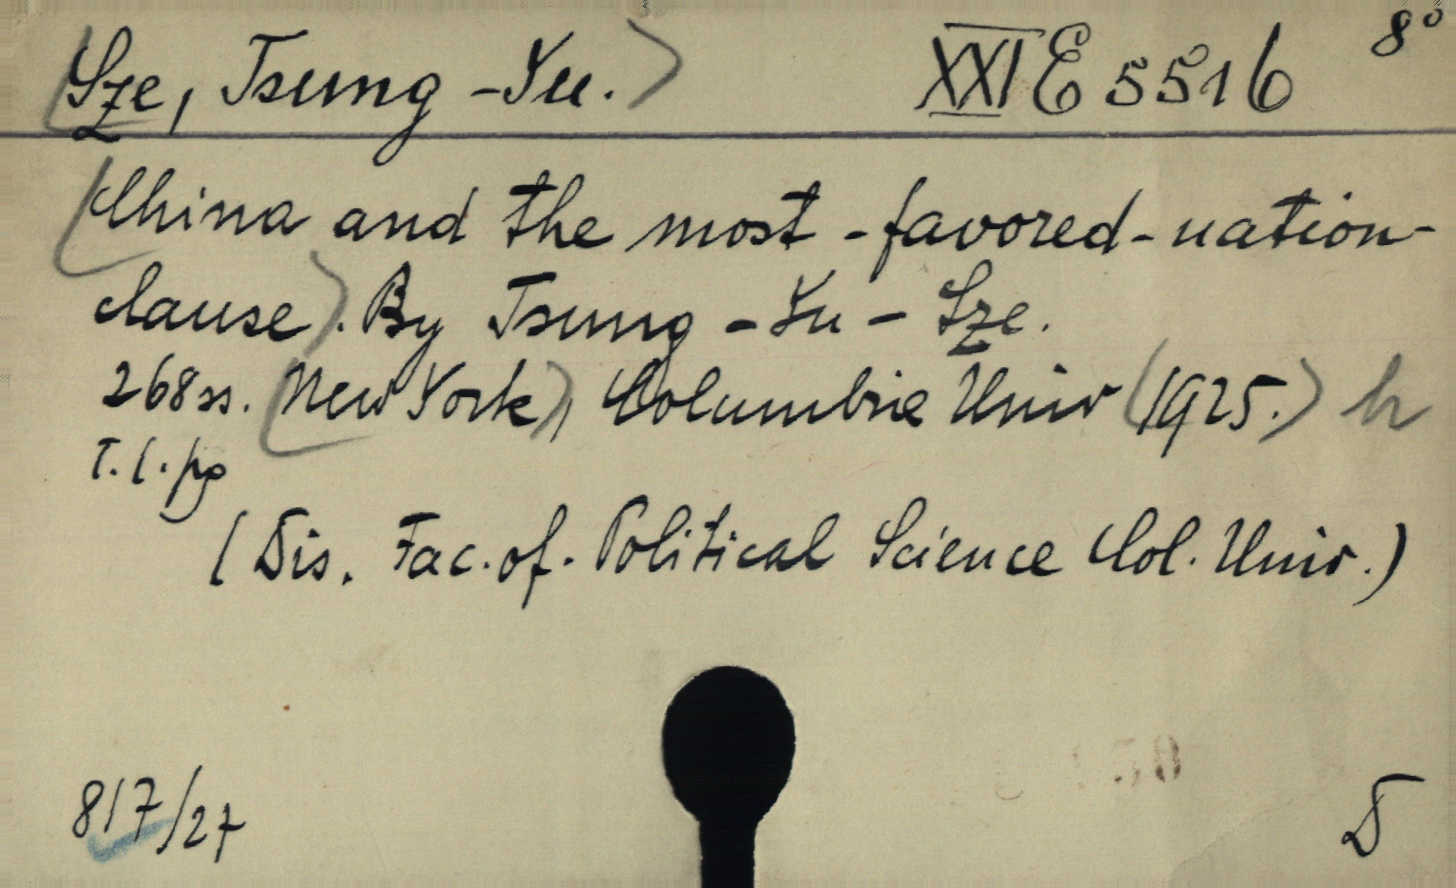 Sze, Tsung-Yu. XXI E 5516 8°
(China and the most-favored-nation-
clause). By Tsung-Yu-Sze.
268 ss. (New York), Columbie Univ (1925.) h
T. l. pg
(Dis. Fac. of. Political Science Col. Univ.)
817/27 D